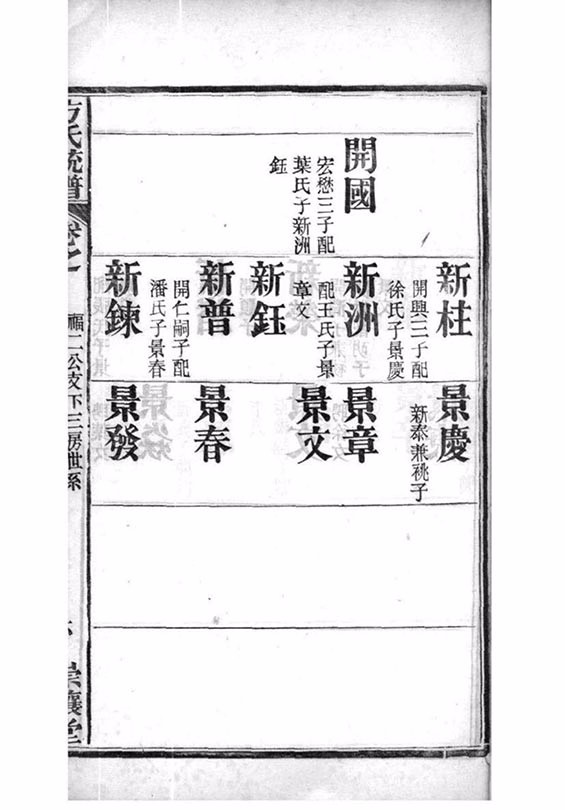 開國
宏懋三子配
葉氏子新洲
鈺
新柱
開興三子配
徐氏子景慶
新洲
配王氏子景
章文
新鈺
新普
開仁嗣子配
潘氏子景春
新鍊
景慶
新泰兼祧子
景章
景文
景春
景發
方氏統譜
福二公支下三房世系
崇讓堂